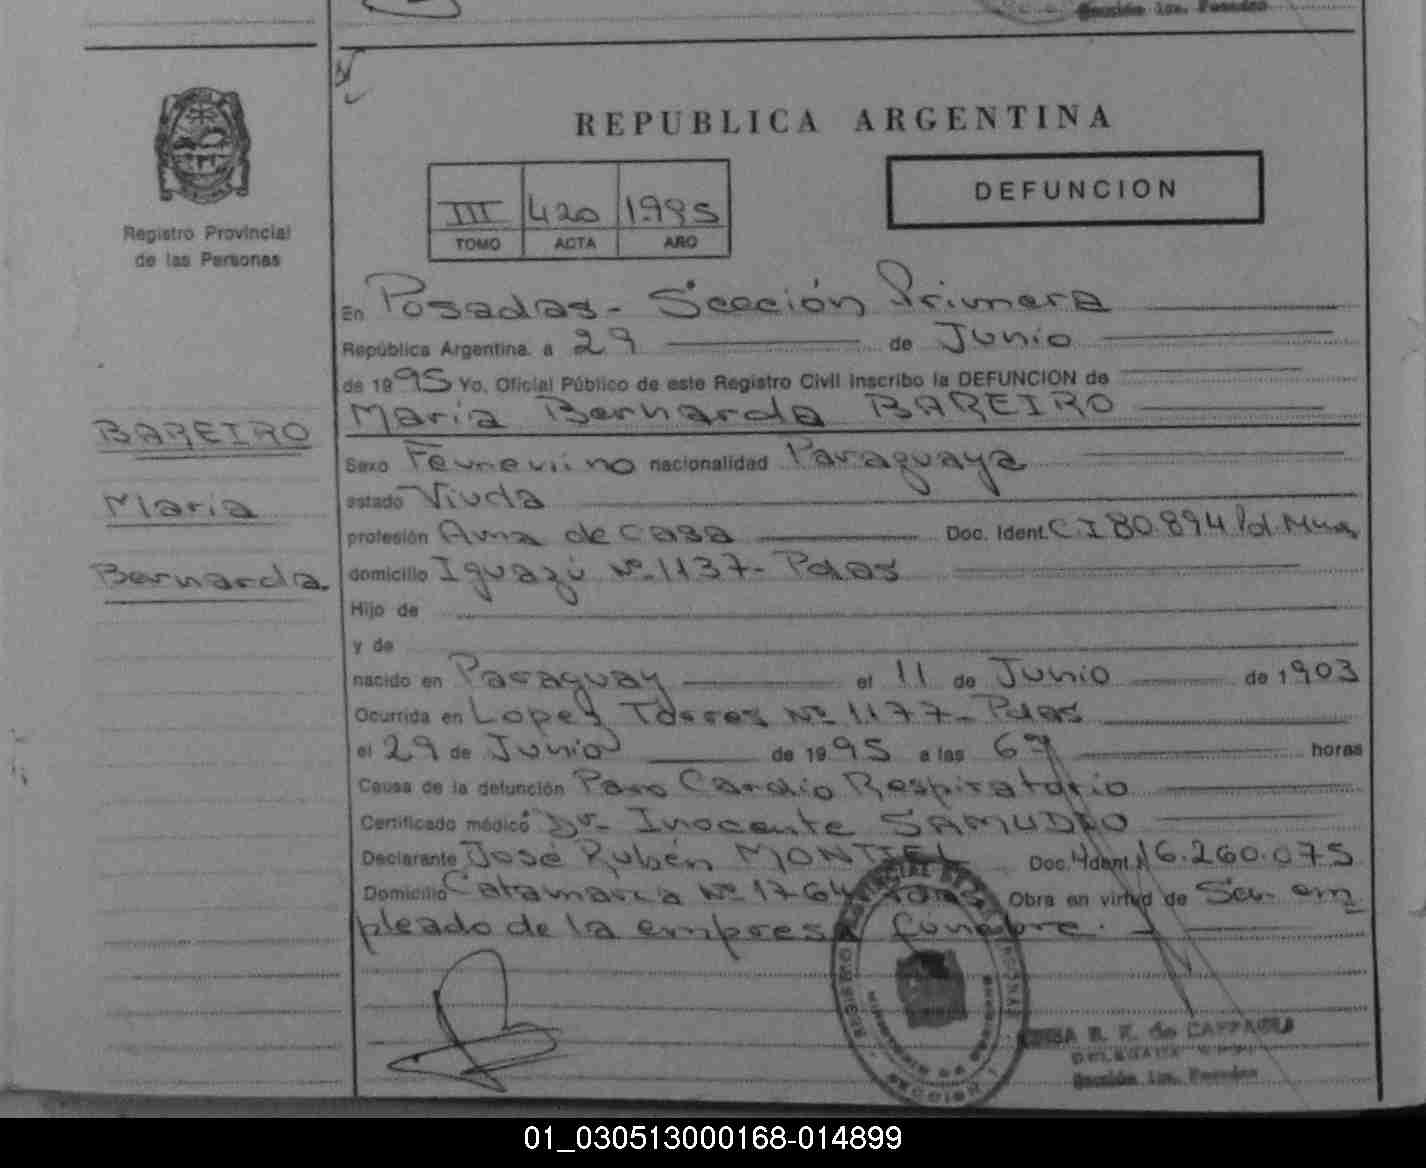 Sección 1ra. Posadas
REPUBLICA ARGENTINA
DEFUNCION
III 420 1.995
TOMO ACTA AÑO
Registro Provincial
de las Personas
En Posadas - Sección Primera
República Argentina. a 29 de Junio
de 1995 Yo, Oficial Público de este Registro Civil inscribo la DEFUNCION de
María Bernarda BAREIRO
BAREIRO
María
Bernarda
Sexo Femenino nacionalidad Paraguaya
estado Viuda
profesión Ama de casa Doc. Ident. C.I 80.894 Pol.
domicilio Iguazú Nº 1137- Pdas
Hijo de
y de
nacido en Paraguay el 11 de Junio de 1903
Ocurrida en Lopez Torres Nº 1177- Pdas
el 29 de Junio de 1995 a las 6 horas
Causa de la defunción Paro Cardio Respiratorio
Certificado médico Dr. Inocente SAMUDIO
Declarante José Rubén MONTIEL Doc. Ident. 16.260.075
Domicilio Catamarca Nº 1764 Pdas Obra en virtud de Ser em
pleado de la empresa fúnebre.
REGISTRO PROVINCIAL DE LAS PERSONAS
MINISTERIO DE GOBIERNO
SECCION 1
E. K. de CAFFAGUI
DELEGADA
Sección 1ra. Posadas
01_030513000168-014899